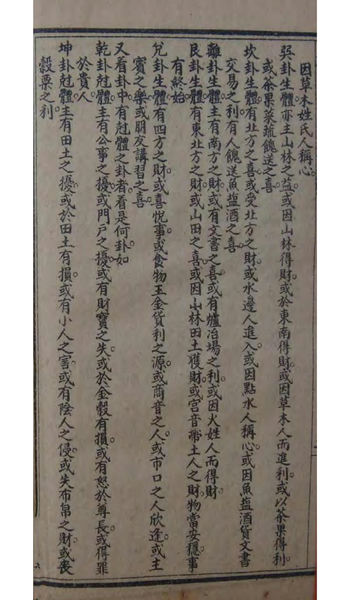 因草木姓氏人稱心
巽卦生體亦主山林之益或因山林得財或於東南得財或因草木人而進利或以茶果得利
或茶果菜蔬餽送之喜
坎卦生體有北方之喜或受北方之財或水邊人進入或因點水人稱心或因魚盬酒貨文書
交易之利有人餽送魚盬酒之喜
離卦生體主有南方之財或有文書之喜或有爐冶場之利或因火姓人而得財
艮卦生體有東北方之財或山田之喜或因山林田土獲財或宮音帶土人之財物當安穩事
有終始
兌卦生體有西方之財或喜悅事或食物玉金貨利之源或商音之人或市口之人欣逢或主
賓之樂或朋友講習之喜
又看卦中有尅體之卦者看是何卦如
乾卦尅體主有公事之擾或門戶之擾或有財寶之失或於金穀有損或有怒於尊長或得罪
於貴人
坤卦尅體主有田土之擾或於田土有損或有小人之害或有陰人之侵或失布帛之財或喪
穀粟之利